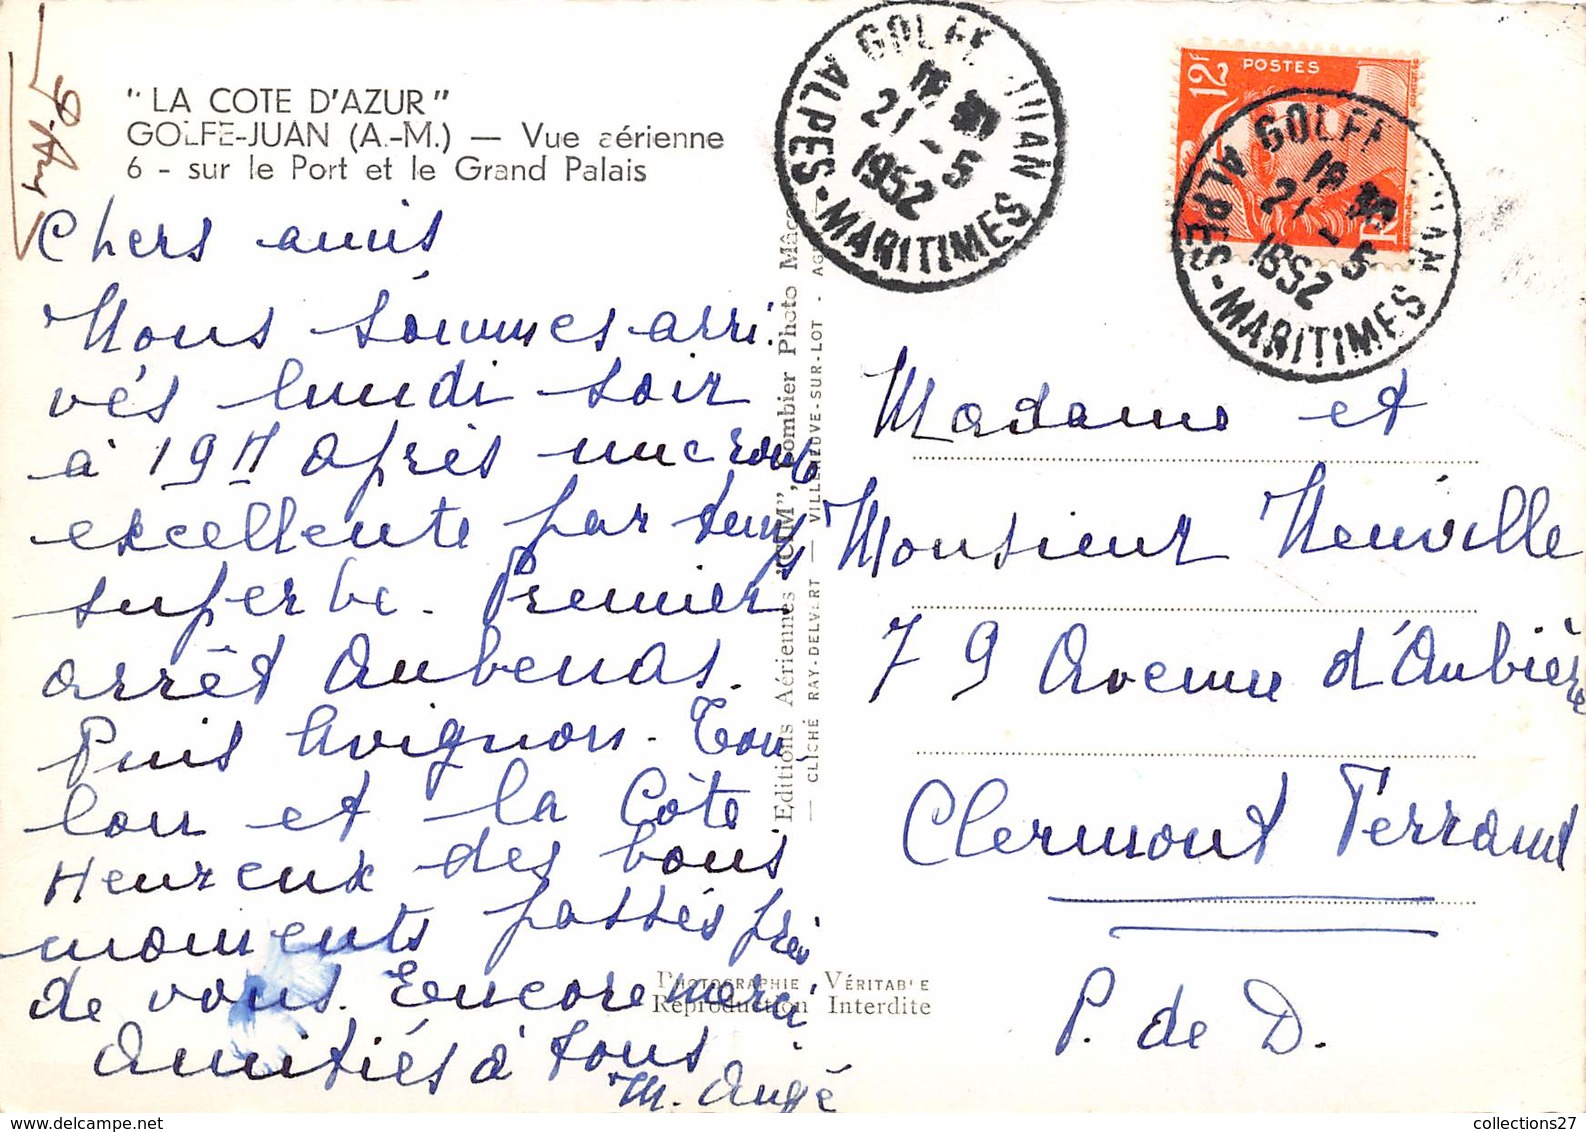 "LA COTE D'AZUR"
GOLFE-JUAN (A.-M.) — Vue aérienne
6 - sur le Port et le Grand Palais
Chers amis
Nous sommes arri
vés lundi soir
à 19H après une route
excellente par temps
superbe. Premier
arrêt Aubenas.
Puis Avignon. Tou-
lon et la Côte
Heureux des bons
moments passés près
de vous. Encore merci
Amitiés à tous
M. Augé
GOLFE JUAN
21-5
1952
ALPES-MARITIMES
POSTES
12F
GOLFE JUAN
21-5
1952
ALPES-MARITIMES
Editions Aériennes "CIM", Combier Photo Mâcon
— CLICHÉ RAY-DELVERT — VILLENEUVE-SUR-LOT -
Madame et
Monsieur Neuville
79 Avenue d'Aubière
Clermont Ferrand
P. de D.
PHOTOGRAPHIE VÉRITABLE
Reproduction Interdite
collections27